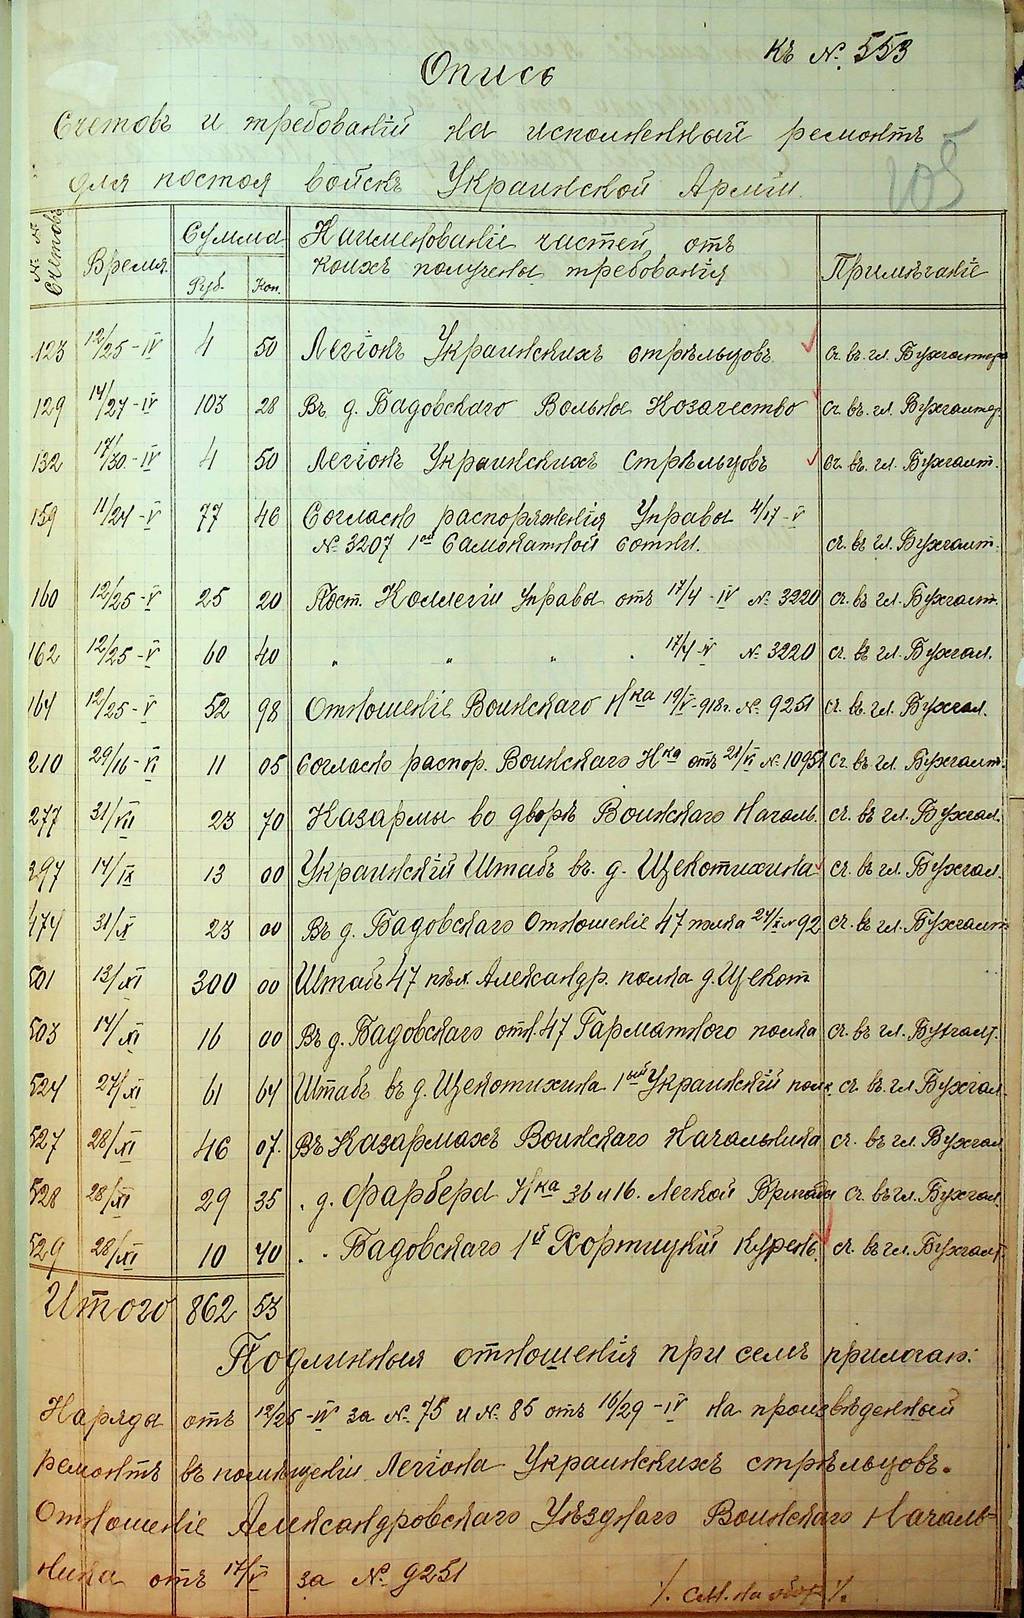 къ № 553
Опись
Счетовъ и требованій на исполненный ремонтъ
для постоя войскъ Украинской Арміи.
105
№ № Счетовъ Время Сумма Руб. Коп. Наименованіе частей отъ коихъ получены требованія Примѣчаніе
123 12/25-IV 4 50 Легіонъ Украинскихъ стрѣльцовъ сч. въ гл. Бухгалтер.
129 14/27-IV 103 28 Въ д. Бадовскаго Вольное Козачество сч. въ. гл. Бухгалтер.
132 17/30-IV 4 50 Легіонъ Украинскихъ Стрѣльцовъ сч. въ. гл. Бухгалт.
159 11/24-V 77 46 Согласно распоряженія Управы 4/17-V
№ 3207 1ой Самокатной сотни. сч. въ гл. Бухгалт.
160 12/25-V 25 20 Пост. Коллегіи Управы отъ 17/4-IV № 3220 сч. въ гл. Бухгалт.
162 12/25-V 60 40 " " " " 17/4-IV № 3220 сч. въ гл. Бухгал.
164 12/25-V 52 98 Отношеніе Воинскаго Нка 19/V-918г. № 9251 сч. въ гл. Бухгал.
210 29/16-VI 11 05 Согласно распор. Воинскаго Нка отъ 21/VI № 10951 сч. въ гл. Бухгалт.
277 31/VII 23 70 Казармы во дворѣ Воинскаго Началь. сч. въ гл. Бухгал.
297 14/IX 13 00 Украинскій Штабъ въ. д. Щекотихина сч. въ гл. Бухгал.
474 31/X 23 00 Въ д. Бадовскаго Отношеніе 47 полка 24/X № 92 сч. въ гл. Бухгалт.
501 13/XI 300 00 Штабъ 47 пѣх. Александр. полка д. Щекот.
503 14/XI 16 00 Въ д. Бадовскаго отн. 47 Гарматного полка сч. въ гл. Бухгалт.
524 27/XI 61 64 Штабъ въ д. Щекотихина 1ый Украинскій полк. сч. въ. гл. Бухгал.
527 28/XI 46 07 Въ Казармахъ Воинскаго Начальника сч. въ гл. Бухгал.
528 28/XI 29 35 . д. Фарбера Нка 36 и 16. Легкой Бригады сч. въ гл. Бухгал.
529 28/XI 10 40 . . Бадовскаго 1й Хортицкій Курень. сч. въ гл. Бухгалт.
Итого 862 53
Подлинныя отношенія при семъ прилогаю:
Наряда отъ 12/25-IV за № 75 и № 85 отъ 16/29-IV на произвѣденный
ремонтъ въ помѣщеніи Легіона Украинскихъ стрѣльцовъ.
Отношеніе Александровскаго Уѣзднаго Воинскаго Началь=
ника отъ 17/V за № 9251
/. см. на обор. /.